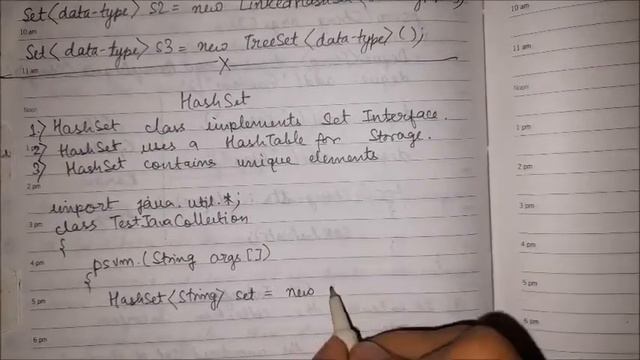 Set<data-type> S2 = new LinkedHashSet
10 am
Set<data-type> S3 = new TreeSet<data-type>();
11 am
X
HashSet
Noon
1) HashSet class implements Set Interface.
1 pm
2) HashSet uses a HashTable for Storage.
3) HashSet contains unique elements
2 pm
import java.util.*;
3 pm
class TestJavaCollection
{
4 pm
psvm.(String args[])
{
5 pm
HashSet<String> set = new
6 pm
10 am
11 am
Noon
1 pm
2 pm
3 pm
4 pm
5 pm
6 pm